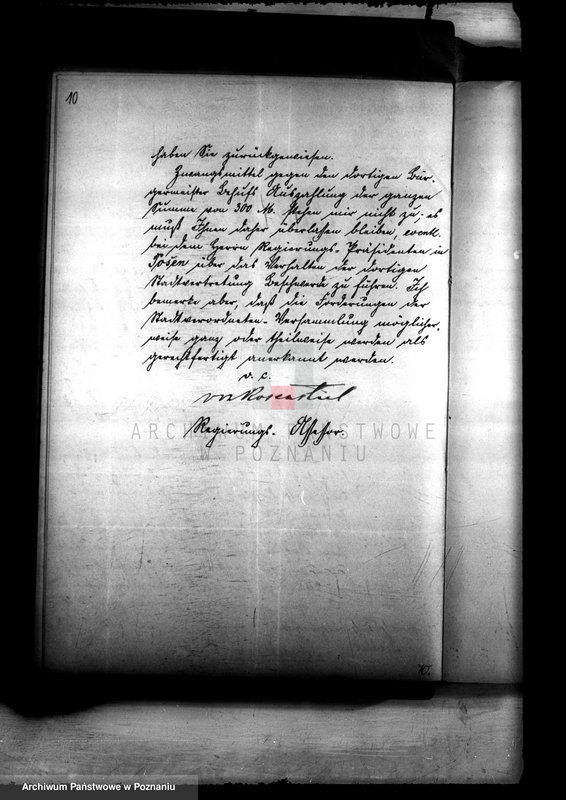 10
haben Sie zurückgewiesen.
Zwangsmittel gegen den dortigen Bür-
germeister Behufs Auszahlung der ganzen
Summe von 300 M. stehen mir nicht zu; es
muß Ihnen daher überlassen bleiben, event.
bei dem Herrn Regierungs-Präsidenten in
Posen über das Verhalten der dortigen
Stadtvertretung Beschwerde zu führen. Ich
bemerke aber, daß die Forderungen der
Stadtverordneten-Versammlung möglicher-
weise ganz oder theilweise werden als
gerechtfertigt anerkannt werden.
Regierungs-Assessor.
ARCHIWUM PAŃSTWOWE
W POZNANIU
Archiwum Państwowe w Poznaniu